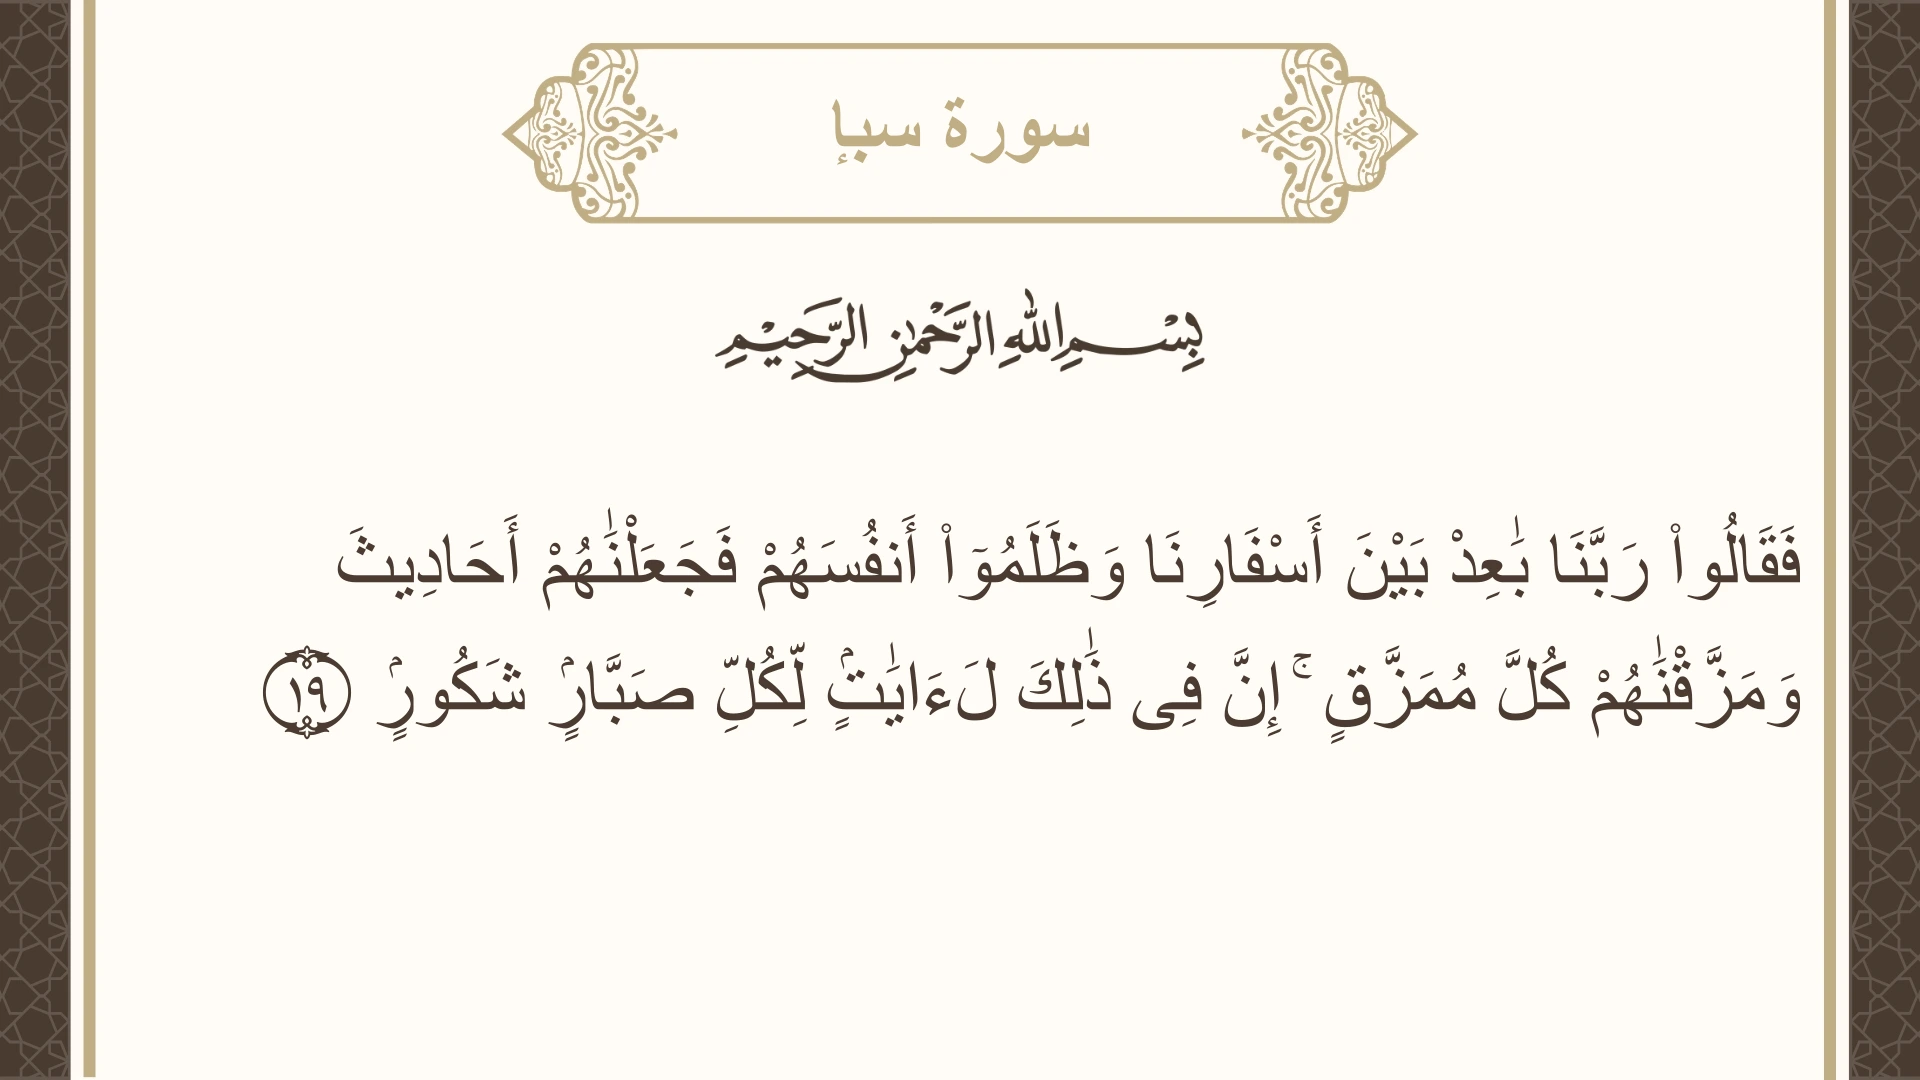 سورة سبإ
بِسْمِ اللَّهِ الرَّحْمَٰنِ الرَّحِيمِ
فَقَالُوا۟ رَبَّنَا بَـٰعِدْ بَيْنَ أَسْفَارِنَا وَظَلَمُوٓا۟ أَنفُسَهُمْ فَجَعَلْنَـٰهُمْ أَحَادِيثَ
وَمَزَّقْنَـٰهُمْ كُلَّ مُمَزَّقٍ ۚ إِنَّ فِى ذَٰلِكَ لَـَٔايَـٰتٍۢ لِّكُلِّ صَبَّارٍۢ شَكُورٍۢ ١٩